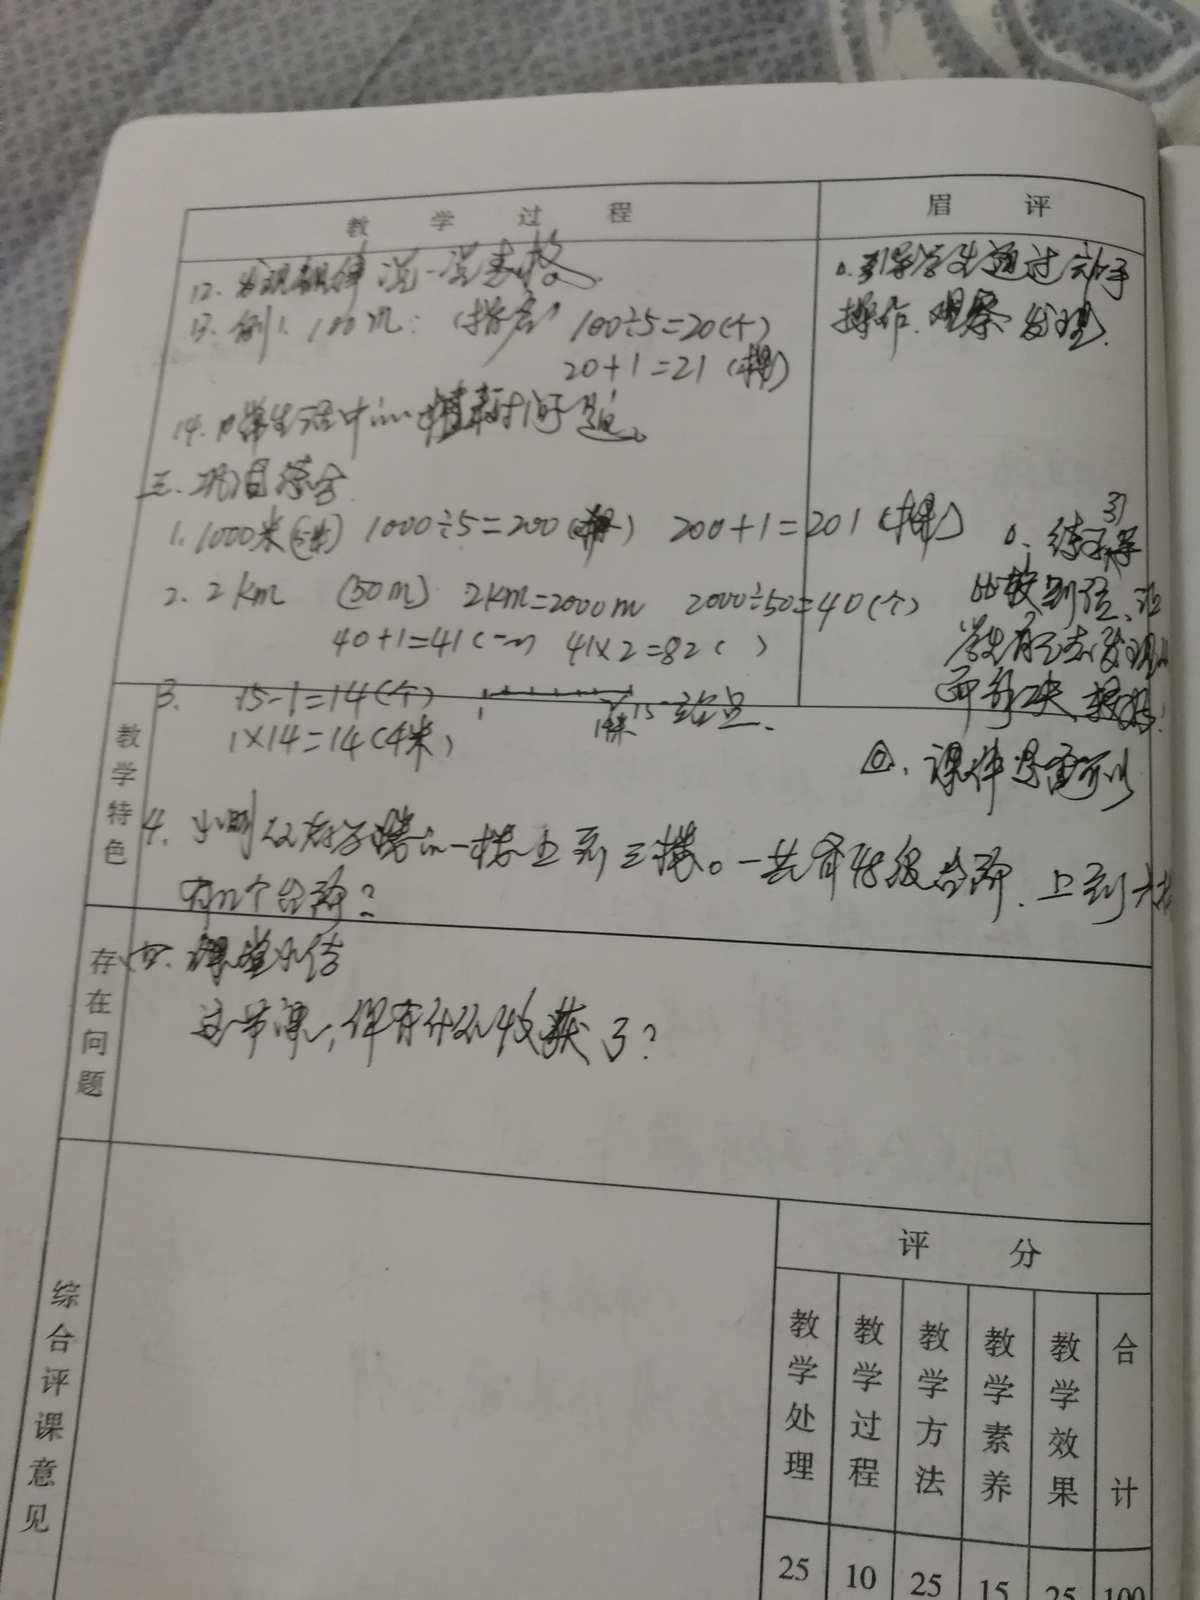 教 学 过 程
眉 评
12. 发现规律 说一说表格
13. 例1. 100m: (指名) 100÷5=20(个)
20+1=21(棵)
14. 日常生活中 植树问题。
三. 巩固练习
1. 1000米 1000÷5=200 200+1=201(棵)
2. 2km (50m) 2km=2000m 2000÷50=40(个)
40+1=41 41×2=82( )
3. 15-1=14(个) 1 15
1×14=14(千米)
4. 小明从 一楼上到三楼。一共有48级台阶. 上到六楼
有几个台阶?
四. 课堂小结
这节课, 你有什么收获了?
引导学生通过动手
操作. 观察 发现.
练习
比较到位、
学生
课件 可以
教学特色
存在问题
综合评课意见
评 分
教学处理
教学过程
教学方法
教学素养
教学效果
合计
25 10 25 15 25 100